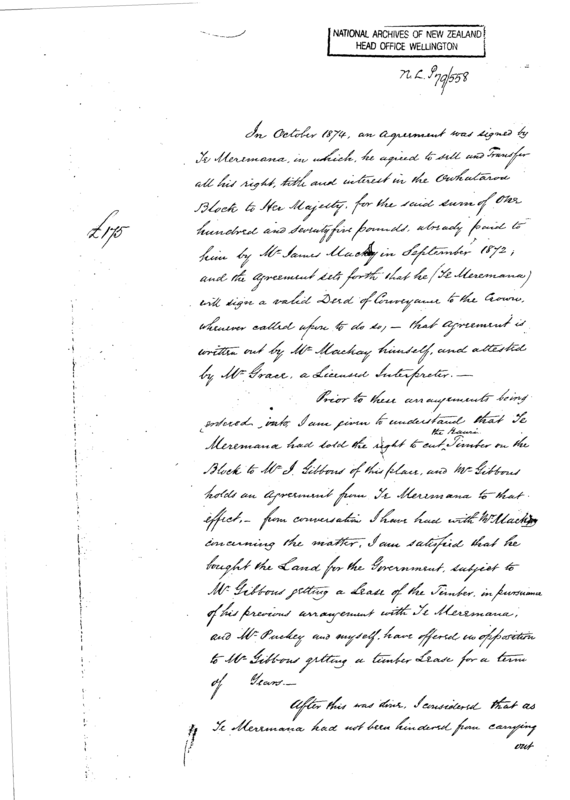 NATIONAL ARCHIVES OF NEW ZEALAND
HEAD OFFICE WELLINGTON
N L P 79/558
In October 1874, an agreement was signed by
Te Meremana, in which, he agreed to sell and Transfer
all his right, title and interest in the Owhataroa
Block to Her Majesty, for the said sum of One
£175
hundred and seventy five pounds, already paid to
him by Mr James Mackay in September 1872;
and the agreement sets forth that he (Te Meremana)
will sign a valid Deed of Conveyance to the Crown,
whenever called upon to do so; — that agreement is
written out by Mr Mackay himself, and attested
by Mr Grace, a Licensed Interpreter. —
Prior to these arrangements being
entered into, I am given to understand that Te
Meremana had sold the right to cut the Kauri Timber on the
Block to Mr J. Gibbons of this place, and Mr Gibbons
holds an agreement from Te Meremana to that
effect, — from conversation I have had with Mr Mackay
concerning the matter, I am satisfied that he
bought the Land for the Government, subject to
Mr Gibbons getting a Lease of the Timber, in pursuance
of his previous arrangement with Te Meremana,
and Mr Puckey and myself, have offered no opposition
to Mr Gibbons getting a timber Lease for a term
of Years. —
After this was done, I considered that as
Te Meremana had not been hindered from carrying
out